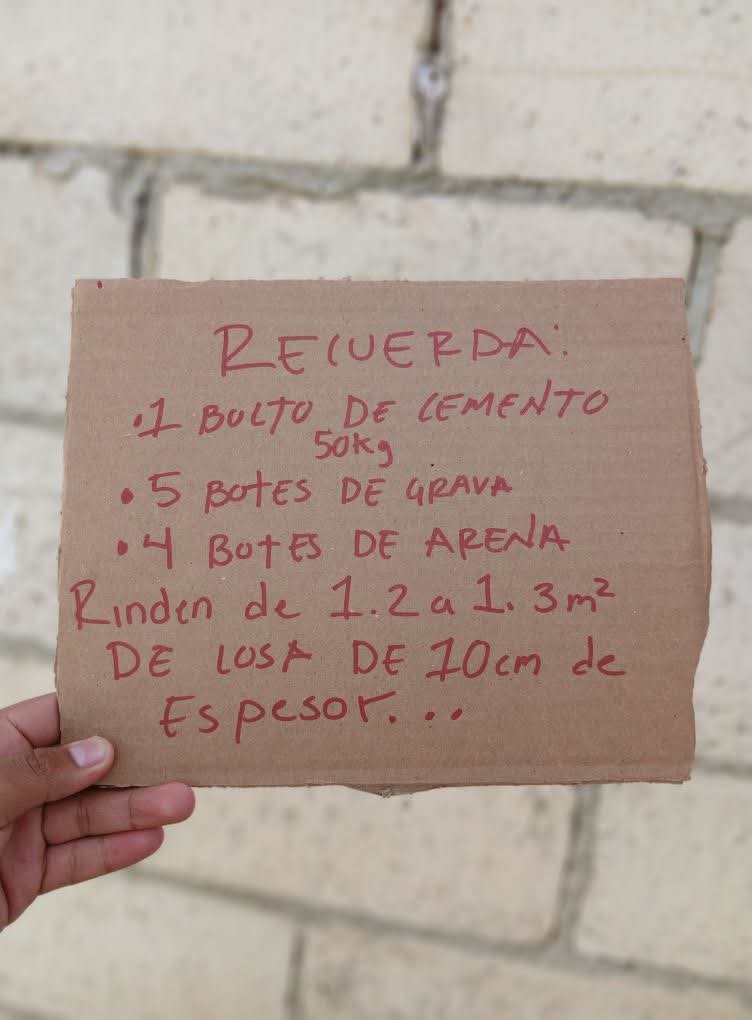 RECUERDA:
• 1 BULTO DE CEMENTO
50kg
• 5 BOTES DE GRAVA
• 4 BOTES DE ARENA
Rinden de 1.2 a 1.3m²
DE LOSA DE 10cm de
Espesor...